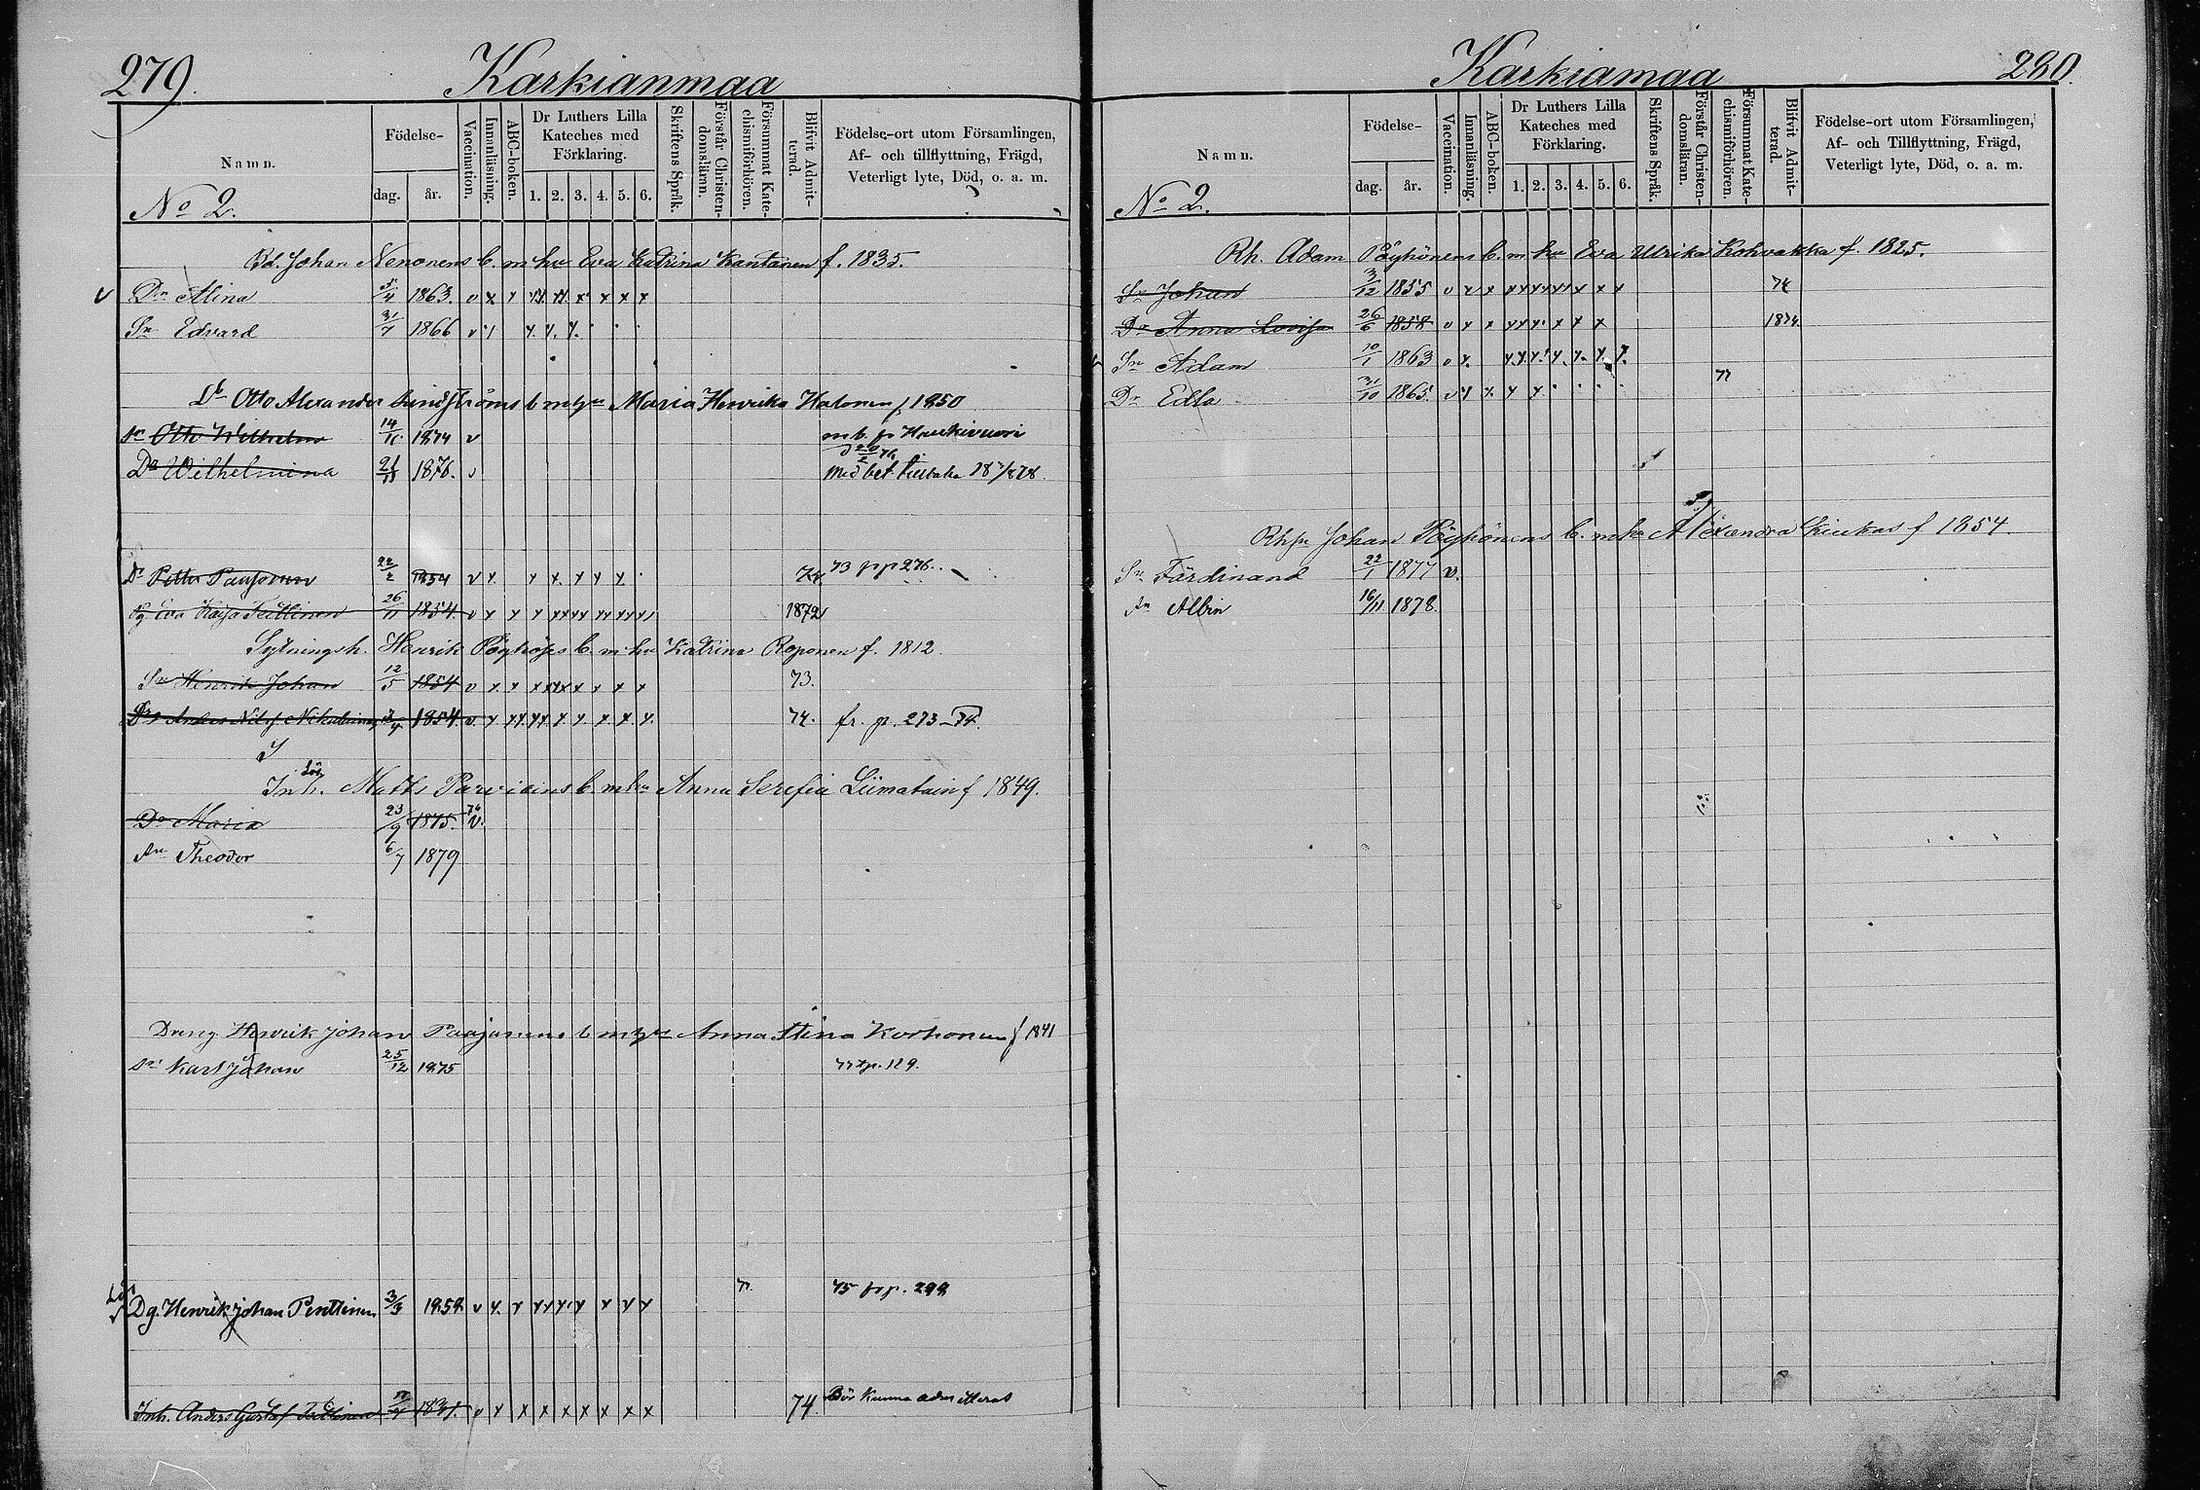 279.
Karkianmaa
Namn.
Födelse-
dag.
år.
Vaccination.
Innanläsning.
ABC-boken.
Dr Luthers Lilla
Kateches med
Förklaring.
1. 2. 3. 4. 5. 6.
Skriftens Språk.
Förstår Christen-
domsläran.
Försummat Kate-
chismiförhören.
Blifvit Admit-
terad.
Födelse-ort utom Församlingen,
Af- och tillflyttning, Frägd,
Veterligt lyte, Död, o. a. m.
No 2.
Bd. Johan Nenonens b. m hu Eva Katrina Kantanen f. 1835.
v Dr Alina 5/4 1863. v x x xx xx x x x x
Sn Edvard 31/7 1866 v
Otto Alexander Lindströms b m hu Maria Henrika Halonen f 1850
sn Otto Wilhelm 14/10 1874 v m. b. fr Haukivuori
Dr Wilhelmina 21/11 1876. v Med bet. tillbaka
Dr Petter 22/2 1854 v x x x x x x 73 p p 276.
Pg Eva Kaisa Teittinen 26/11 1854. v x x x xx xx xx xx 1872
Sytningsh. Henrik Pöyhönens b. m hu Katrina Roponen f. 1812.
Sn Henrik Johan 12/5 1854 v x x x xxx x x x x 73.
Anders 1854. v x xx xx x x x x x 74. fr. p. 273
Inh. Matts Parviains b. m hu Anna Serefia Liimatain f 1849.
Dr Maria 23/9 1875. v.
Sn Theodor 6/7 1879
Dreng Henrik Johan Paajanens b m hu Anna Stina Korhonen f 1841
Sn Karl Johan 25/12 1875 77 p. 129.
Dg. Henrik Johan Penttinen 3/3 1858 v x x xxxx x x x x 75 fr p. 299
Inh. Anders Gustaf Teittinen v x x x x x x x x 74 Bör kunna admitteras
Karkiamaa
280.
Namn.
Födelse-
dag.
år.
Vaccination.
Innanläsning.
ABC-boken.
Dr Luthers Lilla
Kateches med
Förklaring.
1. 2. 3. 4. 5. 6.
Skriftens Språk.
Förstår Christen-
domsläran.
Försummat Kate-
chismiförhören.
Blifvit Admit-
terad.
Födelse-ort utom Församlingen,
Af- och Tillflyttning, Frägd,
Veterligt lyte, Död, o. a. m.
No 2.
Rh. Adam Pöyhönens b. m hu Eva Ulrika Kohvakka f. 1825.
Sn Johan 3/12 1855 v x x xxxxxx x x 74
Dr Anna Lovisa 26/6 1858 v x x xx x x x x 1874
Sn Adam 10/1 1863 v x. x x x x x x x
Dr Edla 31/10 1865. v x x x x 77
Rhsn Johan Pöyhönens b. m hu Alexandra Kiukas f 1854.
Sn Färdinand 22/1 1877 v.
Sn Albin 16/11 1878.